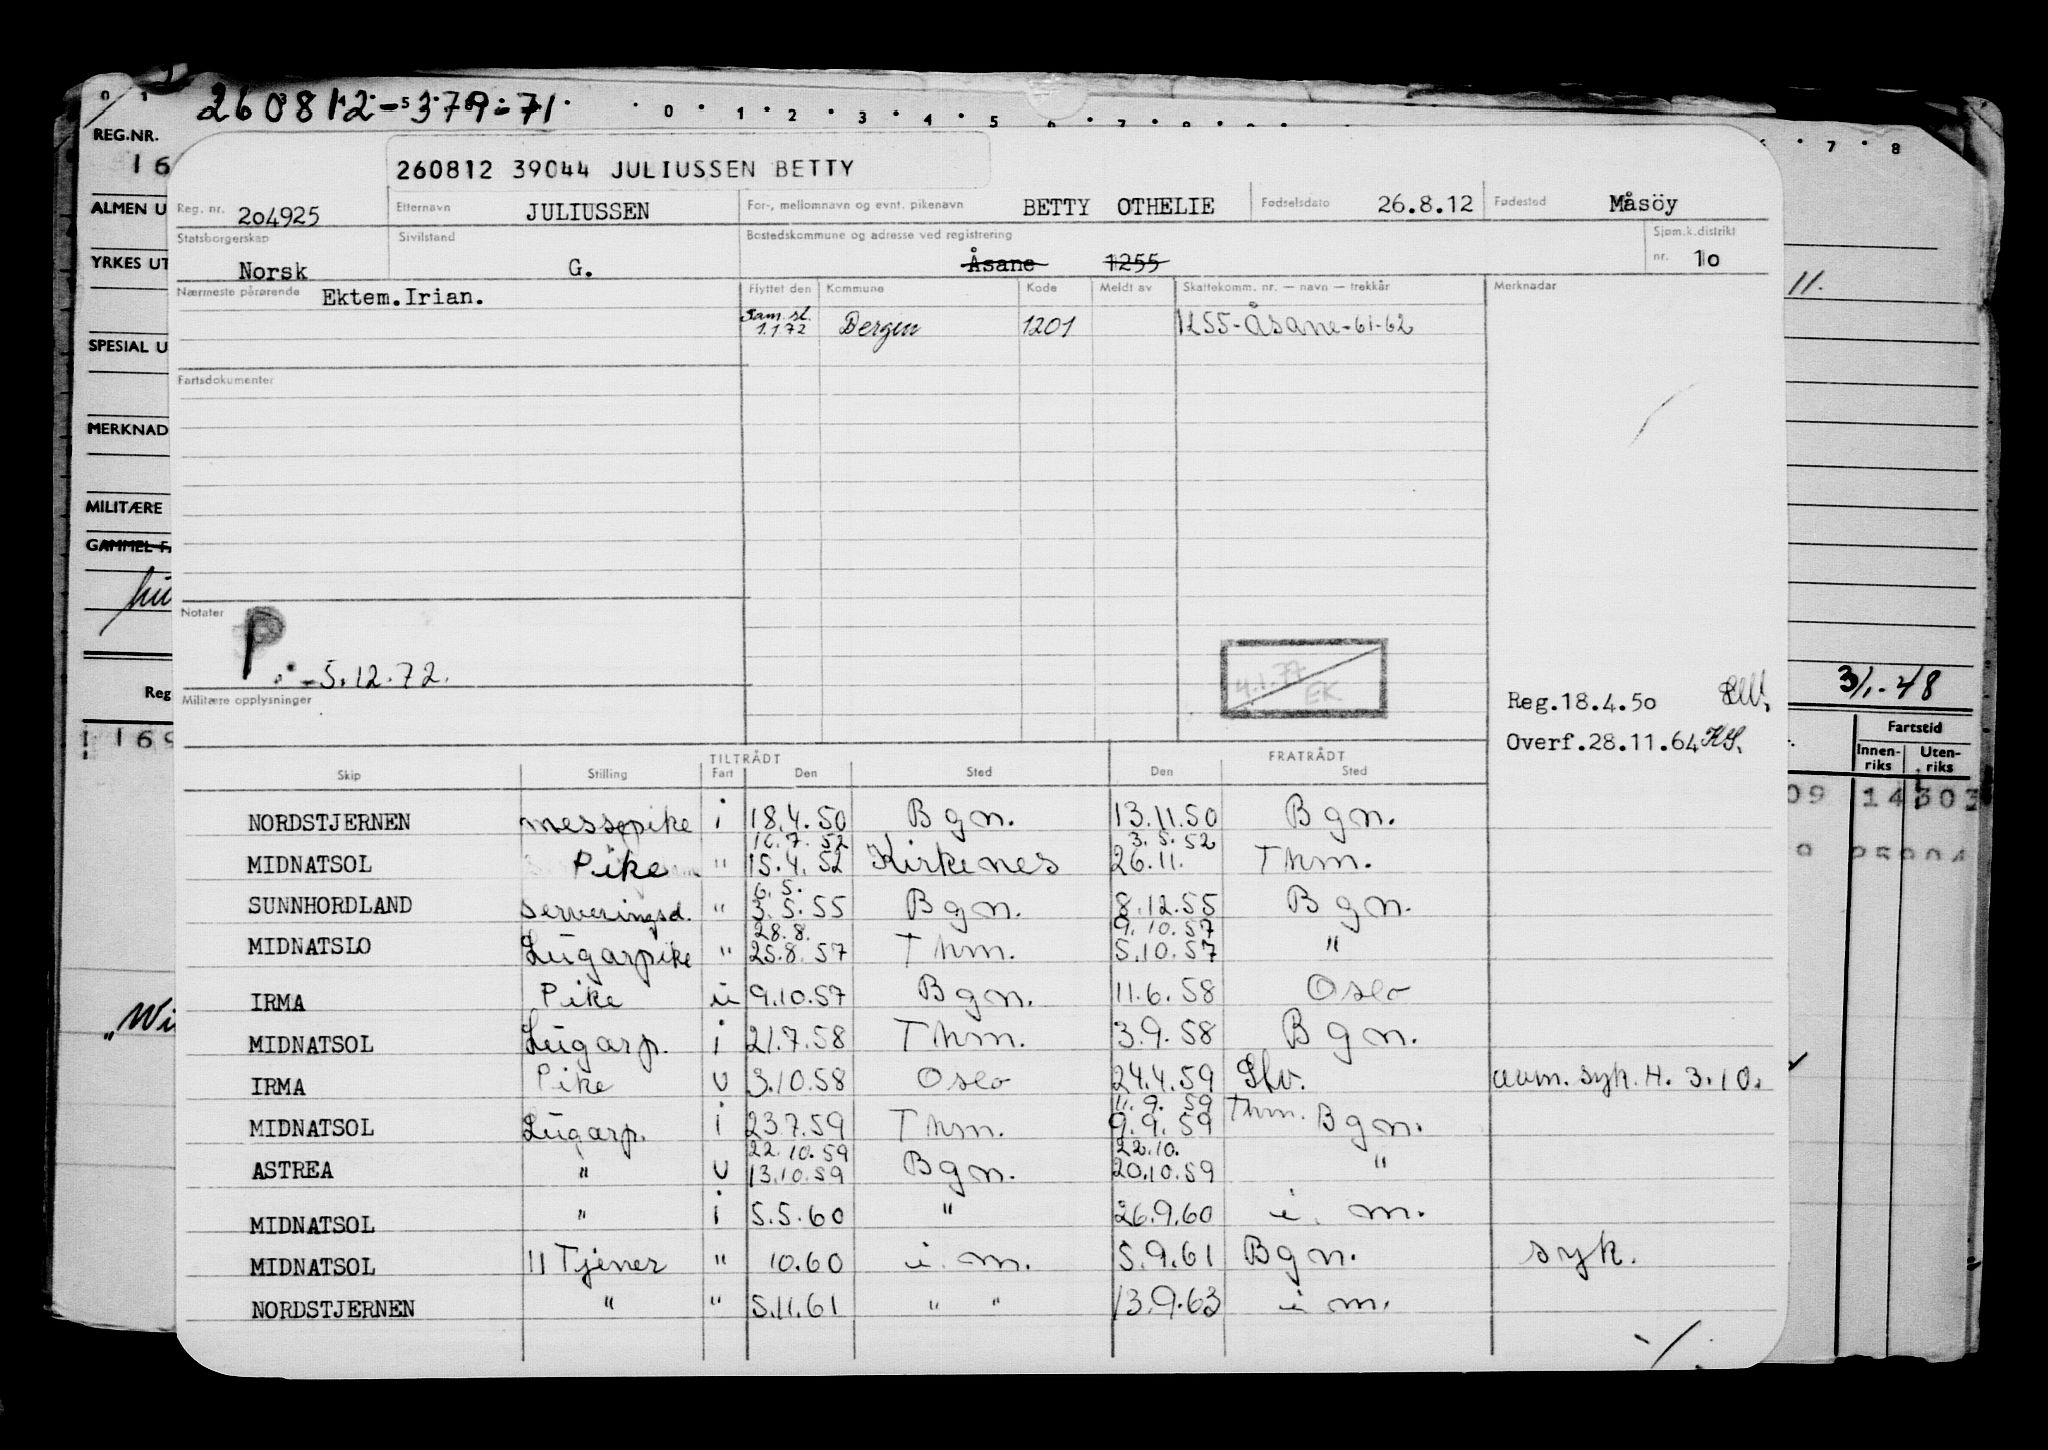 260812-379-71
0 1 2 3 4 5 6 7 8
REG.NR.
16
ALMEN U
YRKES UT
SPESIAL U
MERKNAD
MILITÆRE
GAMMEL F
Reg
169
"Wi
11.
31/1-48
Fartstid
Innen-riks Uten-riks
09 14 303
260812 39044 JULIUSSEN BETTY
Reg. nr. 2o4925 Etternavn JULIUSSEN For-, mellomnavn og evnt. pikenavn BETTY OTHELIE Fødselsdato 26.8.12 Fødested Måsöy
Statsborgerskap Norsk Sivilstand G. Bostedskommune og adresse ved registrering Åsane 1255 Sjøm.k.distrikt nr. 1o
Nærmeste pårørende Ektem.Irian. Flyttet den Kommune Kode Meldt av Skattekomm. nr. — navn — trekkår Merknader
Sam.sl. 1.1.72 Bergen 1201 1255-Åsane-61-62
Fartsdokumenter
Notater
P
-5.12.72.
4.1.77
EK
Militære opplysninger
Reg.18.4.5o
Overf.28.11.64 KS.
TILTRÅDT FRATRÅDT
Skip Stilling Fart Den Sted Den Sted
NORDSTJERNEN messepike i 18.4.50 Bgn. 13.11.50 Bgn.
16.7.52 3.5.52
MIDNATSOL Pike " 15.4.52 Kirkenes 26.11. Thm.
6.5.
SUNNHORDLAND serveringsd. " 3.5.55 Bgn. 8.12.55 Bgn.
28.8. 9.10.57
MIDNATSLO Lugarpike " 25.8.57 Thm. 5.10.57 "
IRMA Pike u 9.10.57 Bgn. 11.6.58 Oslo
MIDNATSOL Lugarp. i 21.7.58 Thm. 3.9.58 Bgn.
IRMA Pike u 3.10.58 Oslo 24.4.59 Slv. avm. syk. H. 3.10.
11.9.59 Thm.
MIDNATSOL Lugarp. i 23.7.59 Thm. 9.9.59 Bgn.
22.10.59 22.10.
ASTREA " u 13.10.59 Bgn. 20.10.59 "
MIDNATSOL " i 5.5.60 " 26.9.60 i. m.
MIDNATSOL II Tjener " 10.60 i. m. 5.9.61 Bgn. syk.
NORDSTJERNEN " " 5.11.61 " " 13.9.63 i m.